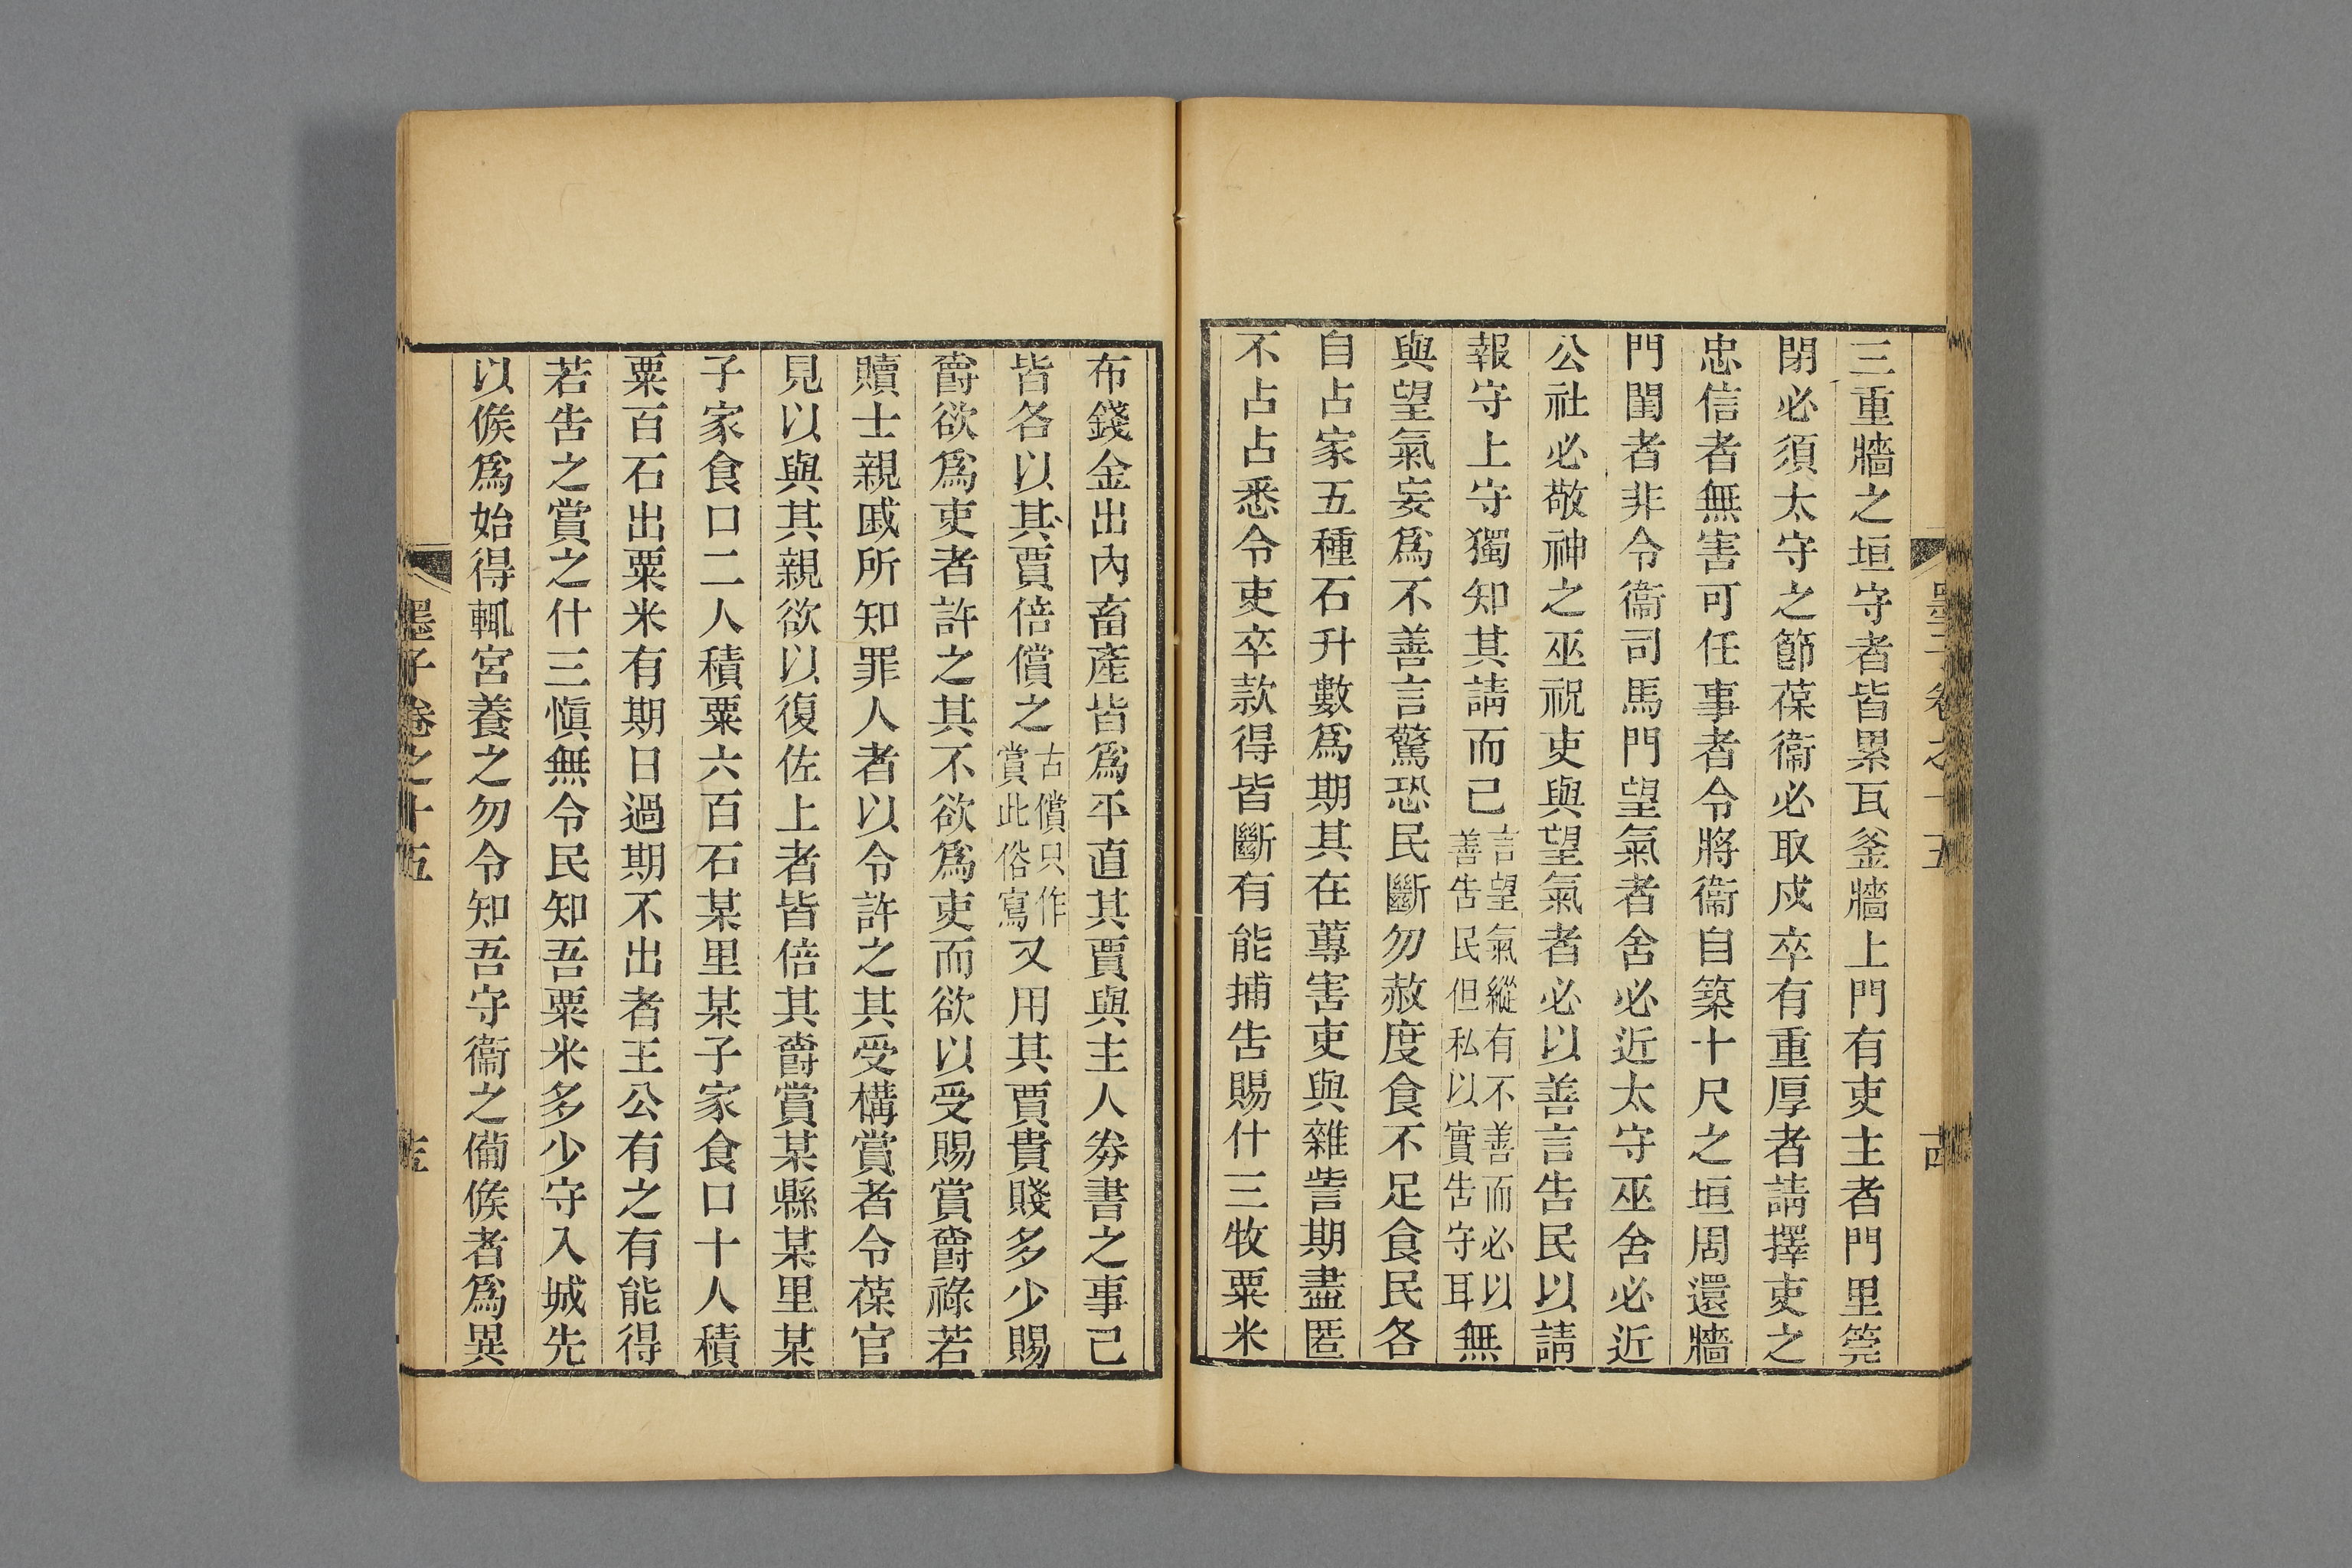 墨子卷之十五
三重牆之垣守者皆累瓦釜牆上門有吏主者門里筦
閉必須太守之節葆衞必取戍卒有重厚者請擇吏之
忠信者無害可任事者令將衞自築十尺之垣周還牆
門閨者非令衞司馬門望氣者舍必近太守巫舍必近
公社必敬神之巫祝吏與望氣者必以善言告民以請
報守上守獨知其請而已言望氣縱有不善而必以善告民但私以實告守耳無
與望氣妄爲不善言驚恐民斷勿赦度食不足食民各
自占家五種石升數爲期其在蓴害吏與雜訾期盡匿
不占占悉令吏卒款得皆斷有能捕告賜什三牧粟米
布錢金出內畜產皆爲平直其賈與主人劵書之事已
皆各以其賈倍償之古償只作賞此俗寫又用其賈貴賤多少賜
爵欲爲吏者許之其不欲爲吏而欲以受賜賞爵祿若
贖士親戚所知罪人者以令許之其受構賞者令葆官
見以與其親欲以復佐上者皆倍其爵賞某縣某里某
子家食口二人積粟六百石某里某子家食口十人積
粟百石出粟米有期日過期不出者王公有之有能得
若告之賞之什三愼無令民知吾粟米多少守入城先
以候爲始得輒宮養之勿令知吾守衞之備候者爲異
墨子卷之十五